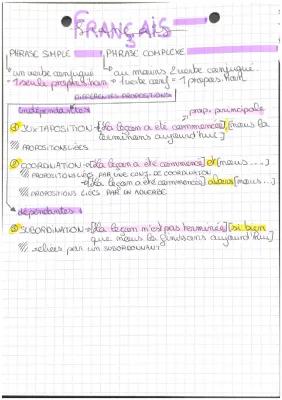 FRANÇAIS
PHRASE SIMPLE PHRASE COMPLEXE
un verbe conjugué au moins 2 verbe conjugué
= 1 seule proposition = 1 verbe conj = 1 propos.
DIFFÉRENTES PROPOSITIONS
indépendantes : prop. principale
① JUXTAPOSITION → [la leçon a été commencée] [nous la
terminons aujourd'hui]
PROPOSITIONS LIÉES
② COORDINATION → [la leçon a été commencée] et [nous ....]
PROPOSITIONS LIÉES PAR UNE CONJ. DE COORDINATION
[la leçon a été commencée] alors [nous...]
PROPOSITIONS LIÉES PAR UN ADVERBE
dépendantes :
③ SUBORDINATION → [la leçon n'est pas terminée] [si bien
que nous la finissons aujourd'hui]
reliées par un SUBORDONNANT